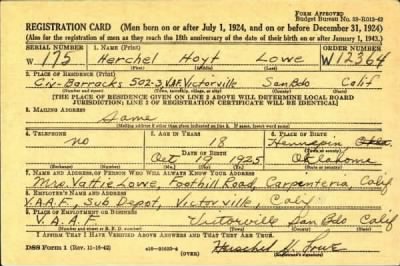 FORM APPROVED
Budget Bureau No. 33-R013-42
REGISTRATION CARD (Men born on or after July 1, 1924, and on or before December 31, 1924)
(Also for the registration of men as they reach the 18th anniversary of the date of their birth on or after January 1, 1943.)
SERIAL NUMBER 1. NAME (Print) ORDER NUMBER
W 175 Herchel Hoyt Lowe W12364
2. PLACE OF RESIDENCE (Print)
Civ-Barracks 502-3 VAF Victorville San Bdo Calif
[THE PLACE OF RESIDENCE GIVEN ON LINE 2 ABOVE WILL DETERMINE LOCAL BOARD
JURISDICTION; LINE 2 OF REGISTRATION CERTIFICATE WILL BE IDENTICAL]
3. MAILING ADDRESS
Same
[Mailing address if other than place indicated on line 2. If same, insert word same]
4. TELEPHONE 5. AGE IN YEARS 6. PLACE OF BIRTH
no 18 Hennepin
DATE OF BIRTH
Oct 19 1925 Oklahoma
(Exchange) (Number) (Mo.) (Day) (Yr.)
7. NAME AND ADDRESS OF PERSON WHO WILL ALWAYS KNOW YOUR ADDRESS
Mrs. Vattie Lowe, Foothill Road, Carpenteria, Calif
8. EMPLOYER'S NAME AND ADDRESS
V.A.A.F., Sub Depot, Victorville, Calif
9. PLACE OF EMPLOYMENT OR BUSINESS
V.A.A.F. Victorville San Bdo Calif
I AFFIRM THAT I HAVE VERIFIED ABOVE ANSWERS AND THAT THEY ARE TRUE.
DSS Form 1 (Rev. 11-16-42) (OVER) Herschel H. Lowe